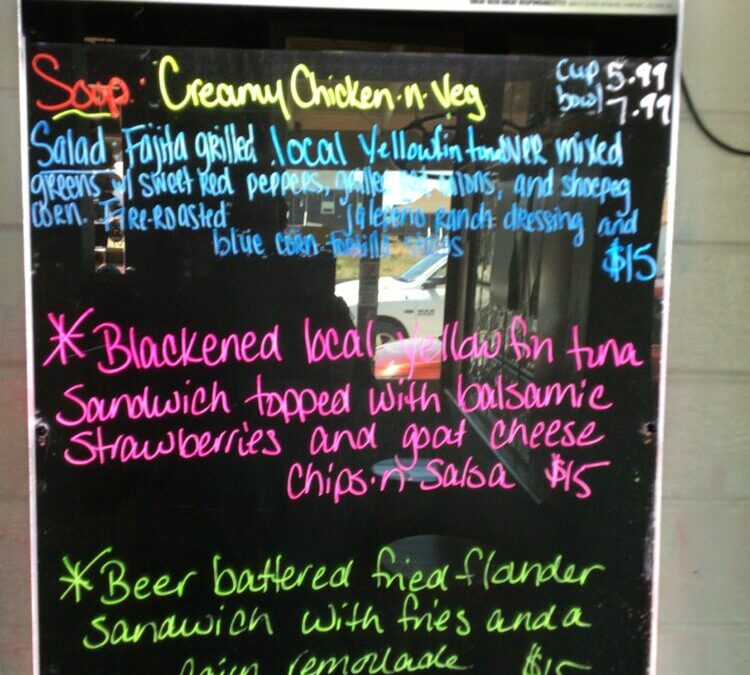 Soup. Creamy Chicken.n.Veg
Cup 5.99
bowl 7.99
Salad. Fajita grilled local Yellowfin tuna over mixed
greens w/ sweet red peppers, grilled red onions, and shoepeg
corn. Fire-Roasted jalepeno Ranch dressing and
blue corn tortilla
$15
*Blackened local yellowfin tuna
sandwich topped with balsamic
strawberries and goat cheese
chips.n.salsa $15
*Beer battered fried flounder
sandwich with fries and a
cajun remoulade $15